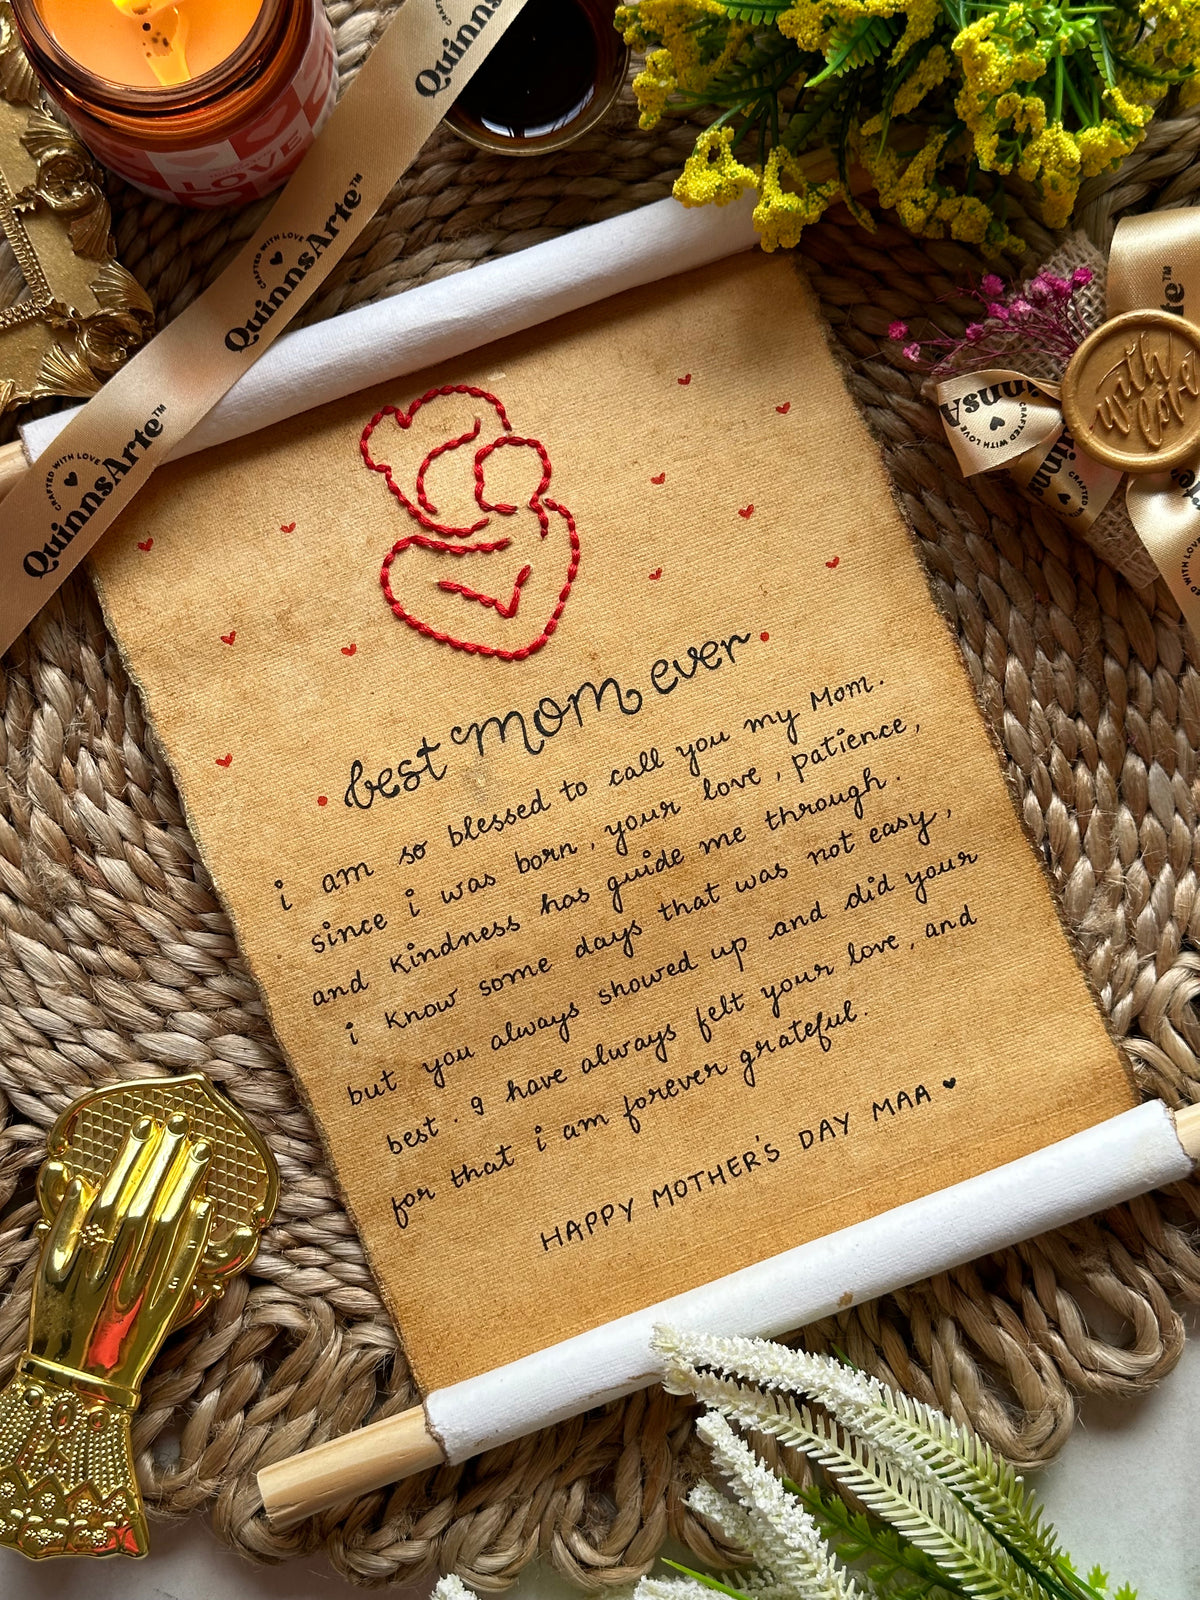 LOVE
QuinnsArte™
CRAFTED WITH LOVE
QuinnsArte™
CRAFTED WITH LOVE
QuinnsArte™
CRAFTED WITH LOVE
with love
best mom ever
i am so blessed to call you my Mom.
since i was born, your love, patience,
and kindness has guide me through.
i know some days that was not easy,
but you always showed up and did your
best. I have always felt your love, and
for that i am forever grateful.
HAPPY MOTHER'S DAY MAA